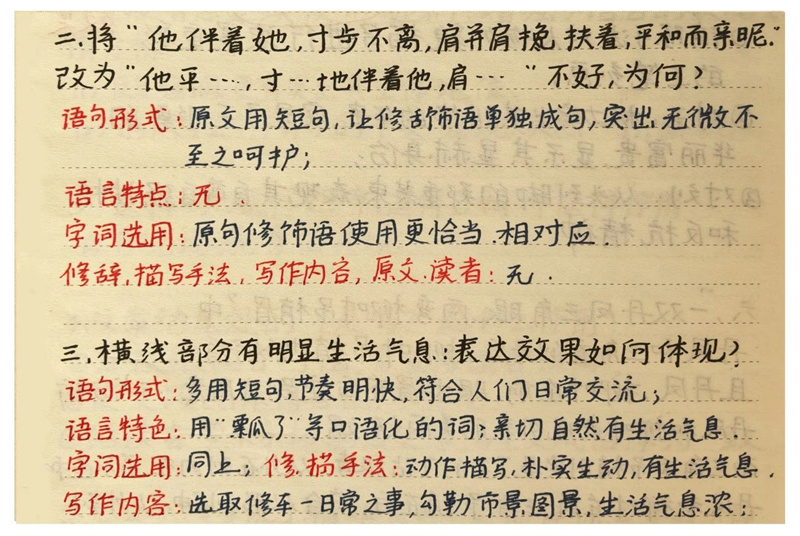 二.将"他伴着她,寸步不离,肩并肩挽扶着,平和而亲昵."
改为"他平…,寸…地伴着他,肩…"不好,为何?
语句形式:原文用短句,让修饰语单独成句,突出无微不
至之呵护;
语言特点:无.
字词选用:原句修饰语使用更恰当.相对应.
修辞,描写手法,写作内容,原文.读者:无.
三.横线部分有明显生活气息:表达效果如何体现?
语句形式:多用短句,节奏明快,符合人们日常交流;
语言特色:用"票瓜了"等口语化的词;亲切自然有生活气息.
字词选用:同上;修.描手法:动作描写,朴实生动,有生活气息.
写作内容:选取修车一日常之事,勾勒市景图景,生活气息浓;